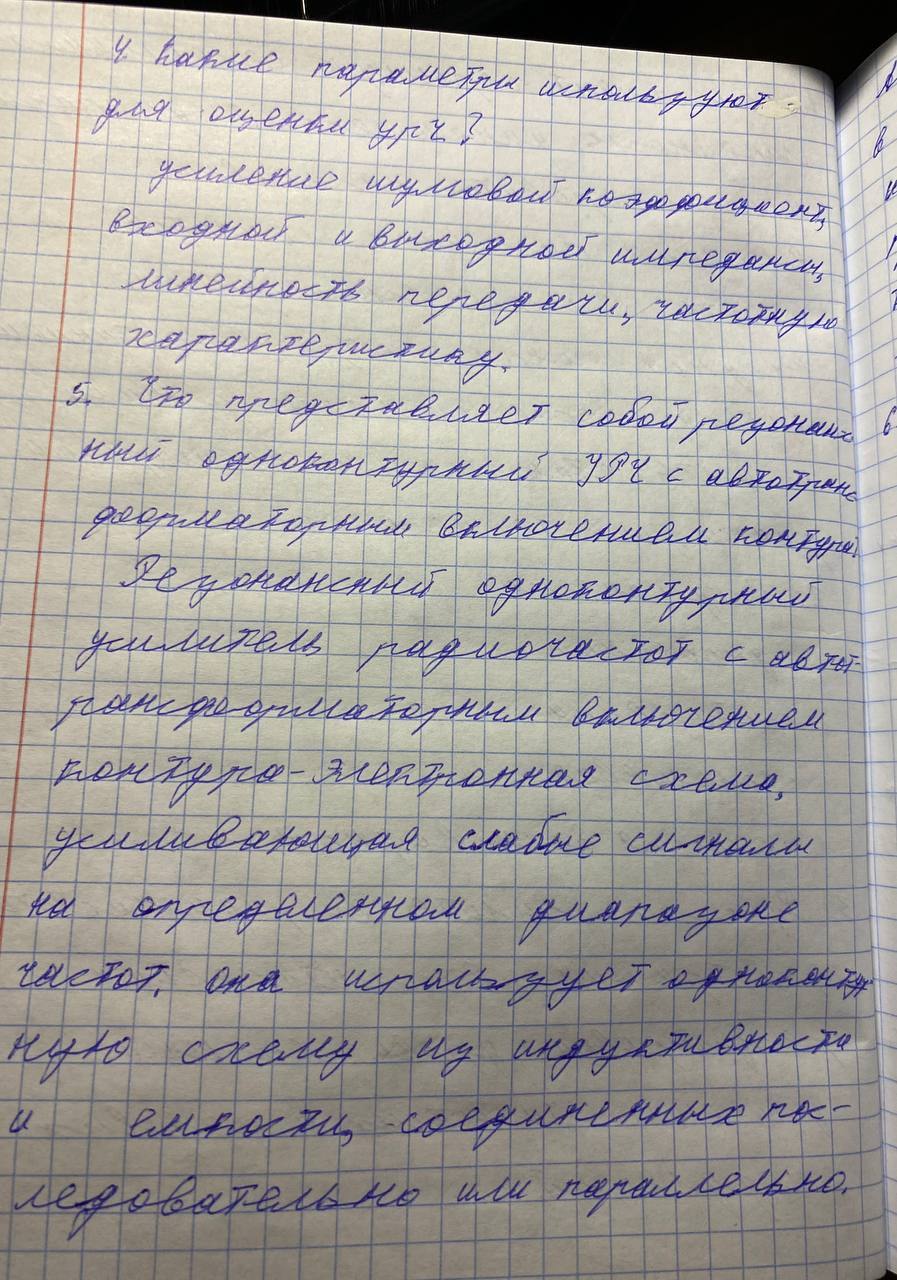 4 Какие параметры используют
для оценки УРЧ?
усиление шумовой коэффициент,
входной и выходной импедансы,
линейность передачи, частотную
характеристику.
5. Что представляет собой резонанс
ный одноконтурный УРЧ с автотранс
форматорным включением контура?
Резонансный одноконтурный
усилитель радиочастот с автот-
рансформаторным включением
контура-электронная схема,
усиливающая слабые сигналы
на определенном диапазоне
частот. она использует одноконтур
ную схему из индуктивности
и емкости, соединенных пос-
ледовательно или параллельно.
в
6